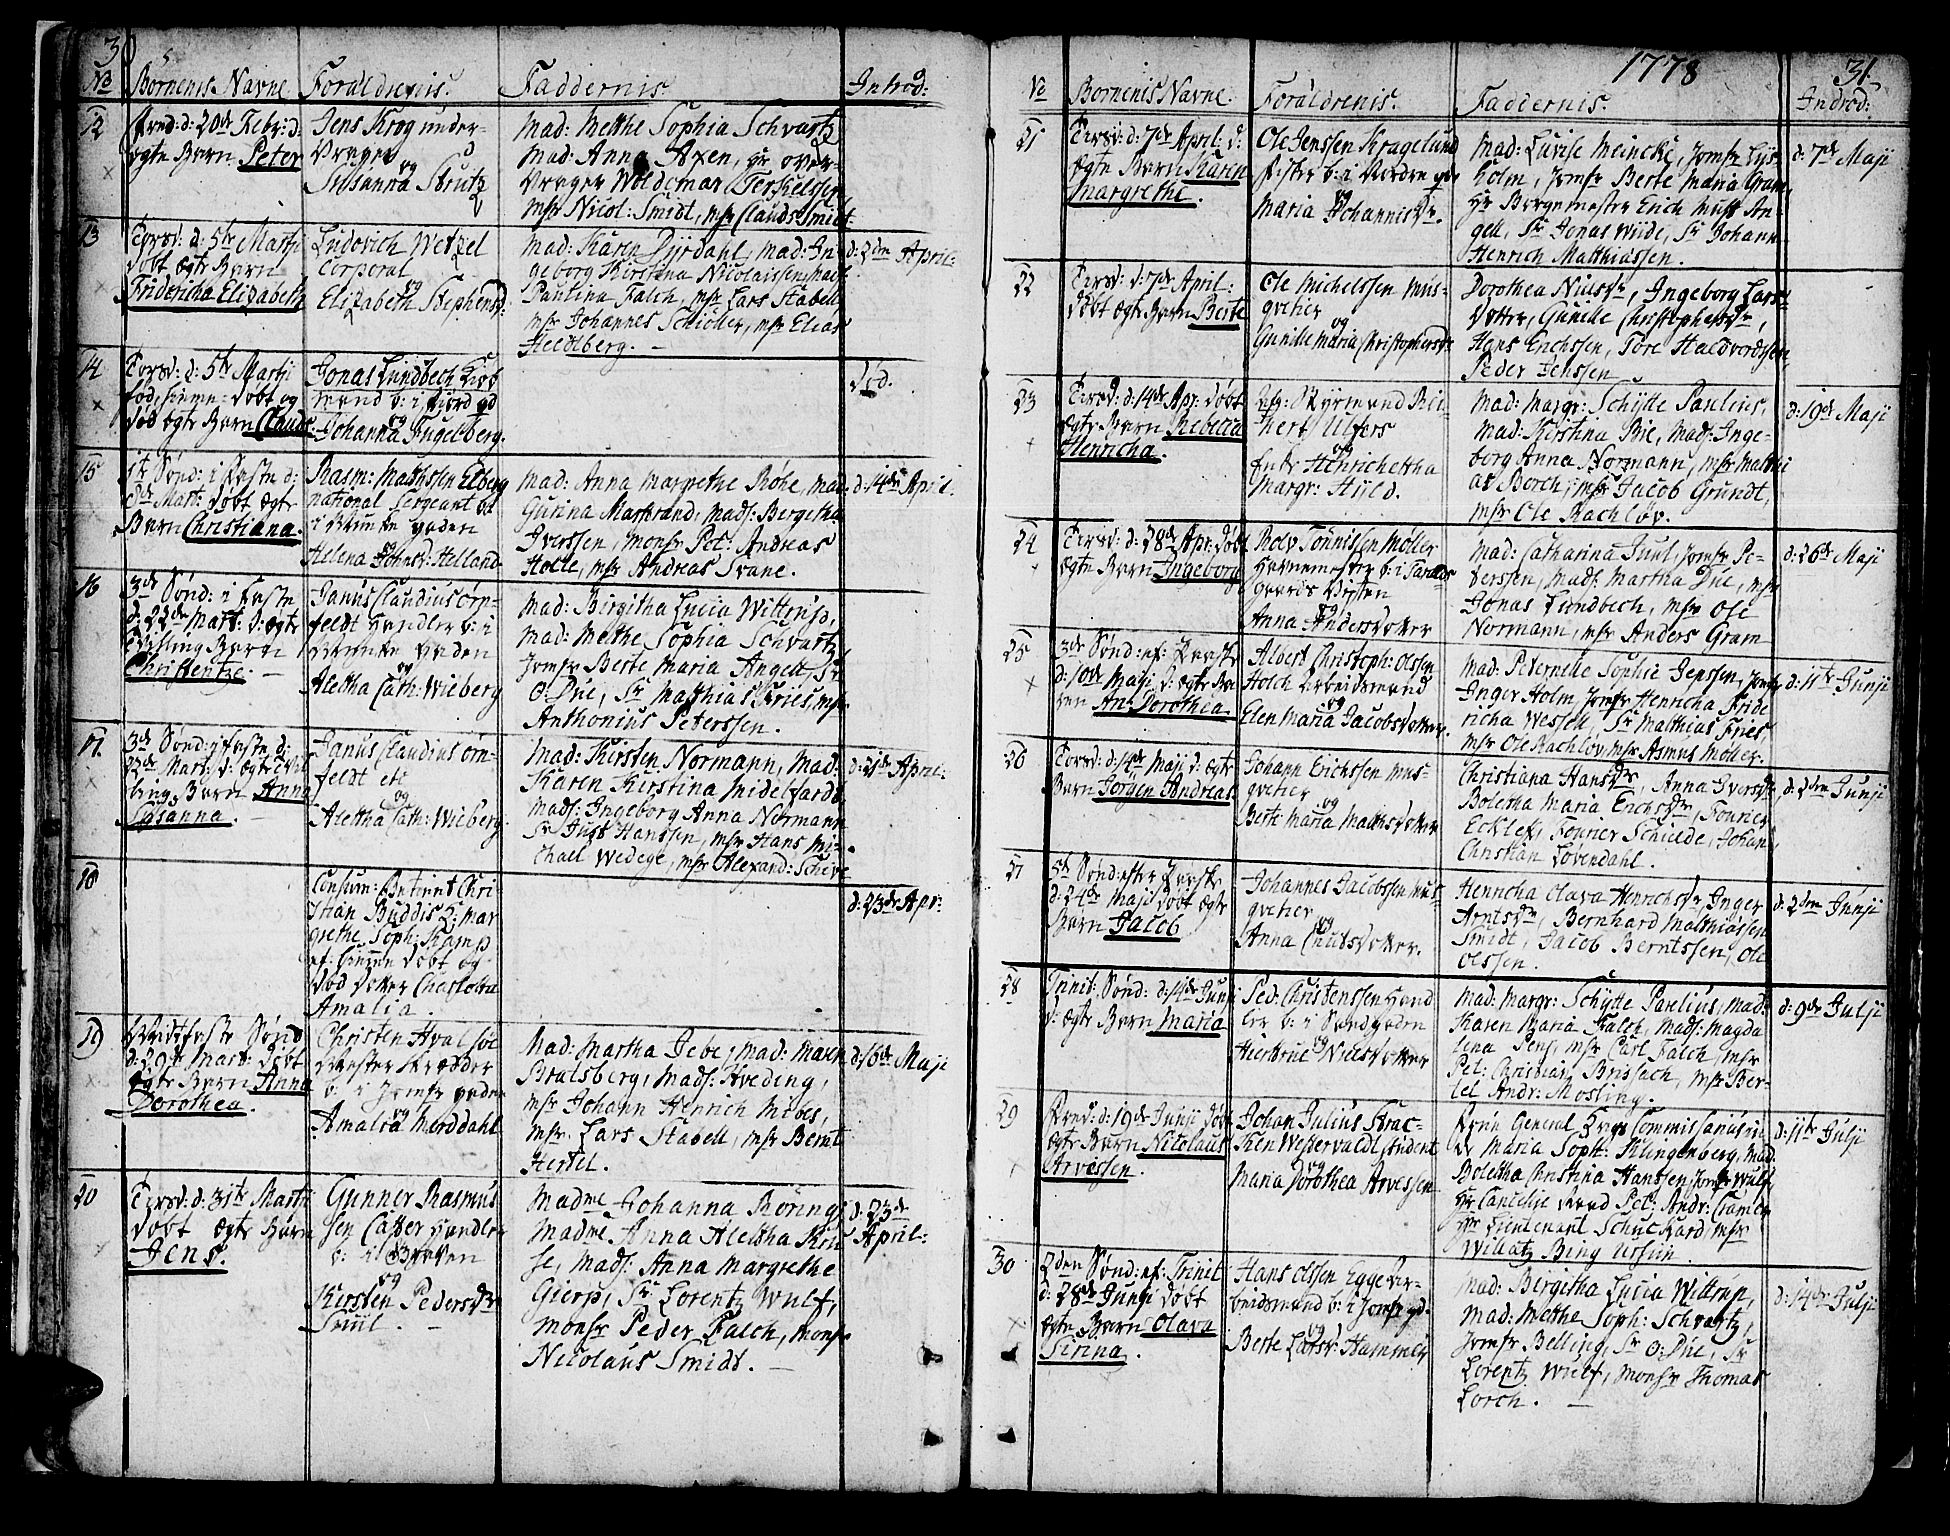 30
No Børnenis Navne
Forældrenis.
Faddernis.
Introd:
12
Fred: d: 20de Febr: d:
ægte Barn Peter
Jens Krog under-
Vrager
og
Susanna Strutz
Mad: Metthe Sophia Schvartz
Mad: Anna Axen, hr over-
Vrager Woldemar Terkelssen
msr Nicol: Smidt, msr Claud: Smidt
13
Torsd: d: 5te Martji
döbt ægte Barn
Fridericha Elizabeth
Ludovich Wetzel
Corporal
og
Elizabeth Stephensd:
Mad: Karen Dyrdahl, mad: In-
geborg Kirstina Nicolaissen, Mads:
Paulina Falch, msr Lars Stabell
msr Johannes Schiöller, msr Elias
Heidlberg.
d: 2den April:
14
Torsd: d: 5te Martji
fød, hieme-döbt og
död ægte Barn Claud:
Jonas Lundbech
mand b: i Fiord gd
og
Johanna Engelberg.
död.
15
1te Sönd: i Faste d:
8de Mart: döbt ægte
Barn Christiana.
Rasm: Mathissen Elberg
national Sergeant bd
i Brinke gaden
Helena Johnsd: Helland
Mad: Anna Margrethe Röhe, mad:
Gurina Marstrand, mads: Bergetha
Iverssen, monsr Pet: Andreas
Holte, msr Andreas Svane.
d: 14de April:
16
3de Sönd: i Faste
d: 22de Mart: d: ægte
Tvilling Barn
Christentze.
Janus Claudius Örn-
feldt handler b: i
Brinke gaden
og
Alettha Cath: Wieberg
Mad: Birgitha Lucia Wittrup,
Mad: Metthe Sophia Schvartz,
Jomfr Berte Maria Angell, Sr
O: Due, Sr Matthias Fries, msr
Anthonius Peterssen.
17
3de Sönd: i Faste d:
22de Mart: d: ægte Tvil-
ling Barn Anna
Susanna.
Janus Claudius Örn-
feldt etc
og
Alettha Cath: Wieberg
Mad: Kirsten Normann, Mad:
Karen Kirstina Midelfardt
Mads: Ingeborg Anna Normann
Sr Just Hanssen, msr Hans Mi-
chael Wedege, msr Alexand: Schive
d: 21de April:
18
Consum: Betient Chri-
stian Buddis & Mar-
grethe Soph: Kamp
hieme döbt og
död Datter Charlotta
Amalia.
d: 23de Apr:
19
Midfaste Sönd
d: 29de Mart: döbt
ægte Barn Anna
Dorothea.
Christen Hvalsöe
Mester Skrædder
b: i Jomfr gaden
og
Amalia Nerddahl
Mad: Martha Jebe, Mad: Maren
Bratsberg, Mads: Hveding,
msr Johann Henrich Mibes,
msr Lars Stabell, msr Bernt
Hertel.
d: 16de Maji
20
Tirsd: d: 31te Martji
döbt ægte Barn
Jens.
Gunner Rasmus-
sen Catter handler
b: i Gaden
og
Kirsten Pedersdr
Smul.
Madme Johanna Böring,
Madme Anna Alettha Kru-
se, Mads: Anna Margrethe
Gierp, Sr Lorentz Wulf,
Monsr Peder Falch, monsr
Nicolaus Smidt.
d: 23de
April:
1778
31
No
Börnenis Navne
Forældrenis.
Faddernis.
Indrod:
21
Tirsd: d: 7de April: d:
ægte Barn Karen
Margrethe.
Ole Jenssen Kragelund
Fisker b: i Nordre gd
og
Maria Johannisdr.
Mad: Luvise Meincke, Jomfr Lys-
holm, Jomfr Berte Maria Gram,
hr Borgemester Erich Must An-
gell, Sr Jonas Wiide, Sr Johann
Henrich Matthiassen.
d: 7de Maji
22
Tirsd: d: 7de April:
döbt ægte Barn Berte
Ole Michelssen Mus-
gvetier
og
Gunille Maria Christophersdr
Dorothea Nielsdr, Ingeborg Lars-
datter, Gunille Christophersdr,
Hans Erichssen, Tore Haldvordssen,
Peder Jenssen
23
Tirsd: d: 14de Apr: döbt
ægte Barn Rebecca
Henricha.
Mad: Margr: Schytte Paulius,
Mad: Kirstina Bie, Mads: Inge-
borg Anna Normann, msr Matthi-
as Borch, msr Jacob Grundt,
msr Ole Rachlöv.
Ulfers
og
Henrichettha
Margr: Hyld.
d: 19de Maji
24
Tirsd: d: 28de Apr: döbt
ægte Barn Ingeborg
Rolv Tönnissen Möller
Havnemester b: i
gaards
og
Anna Andersdatter
Mad: Catharina Juul, Jomfr Pe-
terssen, Mads: Martha Due, msr
Jonas Lundbech, msr Ole
Normann, msr Anders Gram
d: 26de Maji
25
3de Sönd: ef: Paaske
d: 10de Maji d: ægte Ba-
ren An: Dorothea.
Albert Christoph: Olssen
Holck Arbeidsmand
og
Elen Maria Jacobsdatter.
Mad: Peternelle Sophie Jenssen, Jomfr
Inger Holm, Jomfr Henricha Fride-
richa Wessell, Sr Matthias Fries
msr Ole Rachlöv, msr Asmus Möller.
d: 11te Junji
26
Torsd: d: 14de Maji d: ægte
Barn Jörgen Andreas
Johann Erichssen Mus-
gvetier
og
Berte Maria Mathisdatter
Christiana Hansdr, Anna Iversdr
Bolettha Maria Erichsdr, Fourier
Ecklef, Fourier Schiede, Johan
Christian Lövendahl.
d: 2den Junji
27
5te Sönd: efter Paaske
d: 24de Maji döbt ægte
Barn Jacob
Johannes Jacobssen Mus-
gvetier
og
Anna Cnudsdatter.
Henricha Olava Henrichsdr, Inger
Arntsdr, Bernhard Matthiassen
Smidt, Jacob Berntssen, Ole
Olssen.
d: 2den Junji
28
Trinit: Sönd: d: 14de Junji
d: ægte Barn Maria
Ped: Christenssen Hand-
ler b: i Sandgaden
og
Nielsdatter
Mad: Margr: Schytte Paulius, Mad:
Karen Maria Falch, Mads: Magda-
lena Pens, msr Carl Falch, msr
Pet: Christian Brissach, msr Ber-
tel Andr: Mosling.
d: 9de Julji
29
Fred: d: 19de Junji döbt
ægte Barn Nicolaus
Arvessen.
Johan Julius Strac-
ken Westervaldt Student
og
Maria Dorothea Arvessen
Frue General Krigs Commissariusin-
de Maria Soph: Klingenberg, Mad:
Bolettha Christina Hanssen, Jomfr Wulf,
hr Cancelie Raad Pet: Andr: Cramer
hr Lieutenant Schuckard, msr
Willatz Bing Ursiin.
d: 11te Julji
30
2den Sönd: ef: Trinit
d: 28de Junji döbt
ægte Barn Olava
Sirina.
Hans Olssen Egge Ar-
beidsmand b: i Jomfr gd.
og
Berte Larsd: Hammer
Mad: Bergitha Lucia Wittrup,
Mad: Metthe Soph: Schvartz,
Jomfr Belling, Sr O: Due, Sr
Lorentz Wulf, Monsr Thomas
Lorch.
d: 14de Julji